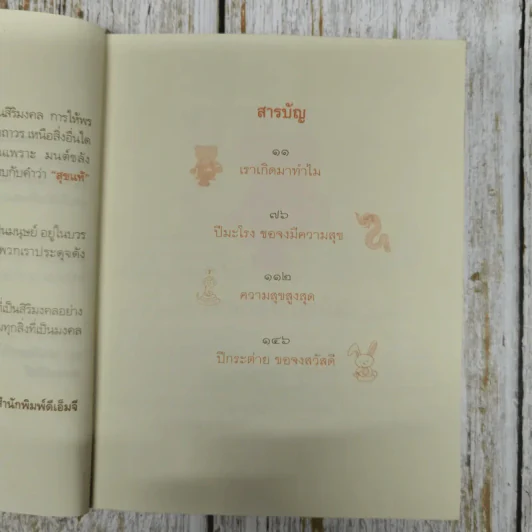 นสิริมงคล การให้พร
ถาวร เหนือสิ่งอื่นใด
นเพราะ มนต์ขลัง
บกับคำว่า "สุขแท้"
นมนุษย์ อยู่ในบวร
พวกเราประดุจดัง
ที่เป็นสิริมงคลอย่าง
นทุกสิ่งที่เป็นมงคล
สำนักพิมพ์ดีเอ็มจี
สารบัญ
๑๑
เราเกิดมาทำไม
๗๖
ปีมะโรง ขอจงมีความสุข
๑๑๒
ความสุขสูงสุด
๑๔๖
ปีกระต่าย ขอจงสวัสดี